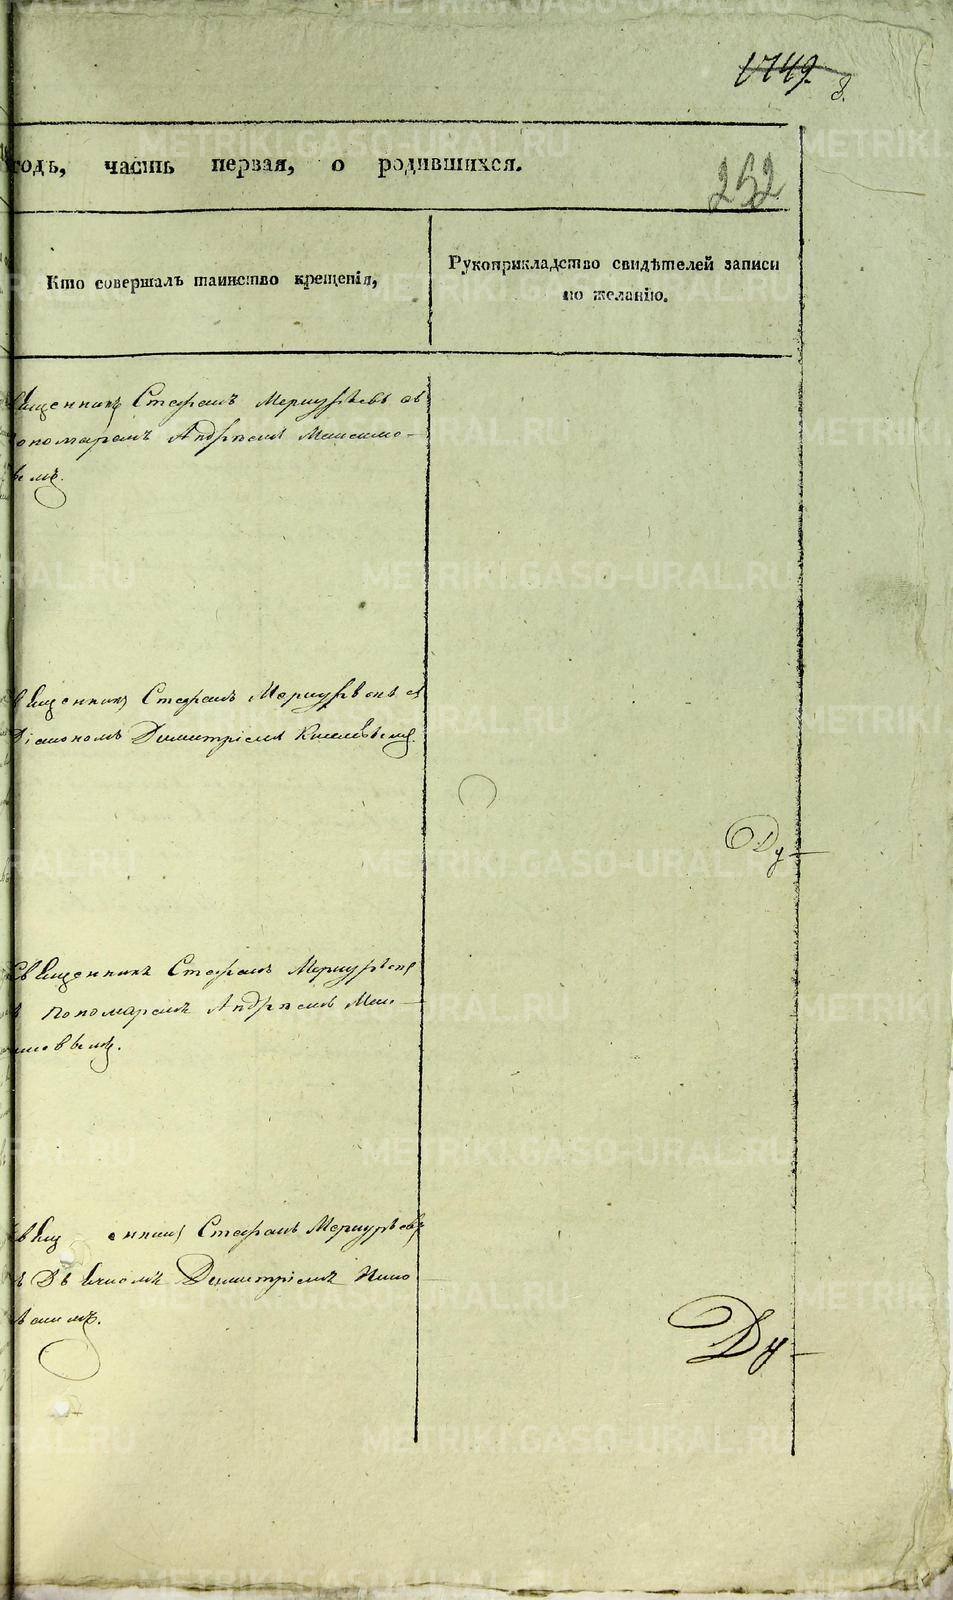 1749.
8.
годъ, часть первая, о родившихся.
252
Кто совершалъ таинство крещенія,
Рукоприкладство свидѣтелей записи
по желанію.
Священникъ Стефанъ Меркурьевъ съ
пономаремъ Андреемъ Максимо-
вымъ.
Священникъ Стефанъ Меркурьевъ съ
Діакономъ Димитріемъ
Священникъ Стефанъ Меркурьевъ
съ пономаремъ Андреемъ Мак-
симовымъ.
Священникъ Стефанъ Меркурьевъ
съ Діакономъ Димитріемъ
Ду-
Ду-
METRIKI.GASO-URAL.RU